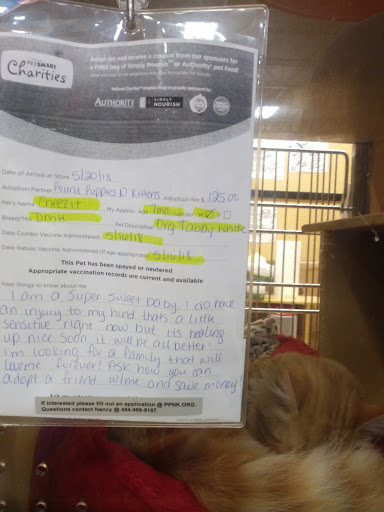 PETSMART
Charities
Adopt me and receive a coupon from our sponsors for
a FREE bag of Simply Nourish™ or Authority® pet food!
AUTHORITY SIMPLY NOURISH
Date of Arrival at Store 5/20/18
Adoption Partner Pound Puppies N Kittens Adoption fee $ 125.00
Pet's Name Cheezit My Approx. Age 7mo Gender
Breed/Mix DMH Pet Description Org Tabby White
Date Combo Vaccine Administered 5/16/18
Date Rabies Vaccine Administered (if age appropriate) 5/16/18
This Pet has been spayed or neutered
Appropriate vaccination records are current and available
Neat things to know about me
I am a super sweet baby. I do have
an injury to my hind thats a little
sensitive right now but its healing
up nice soon it will be all better!
I'm looking for a family that will
love me forever! Ask how you can
adopt a friend w/me and save money!
If interested please fill out an application @ PPNK.ORG.